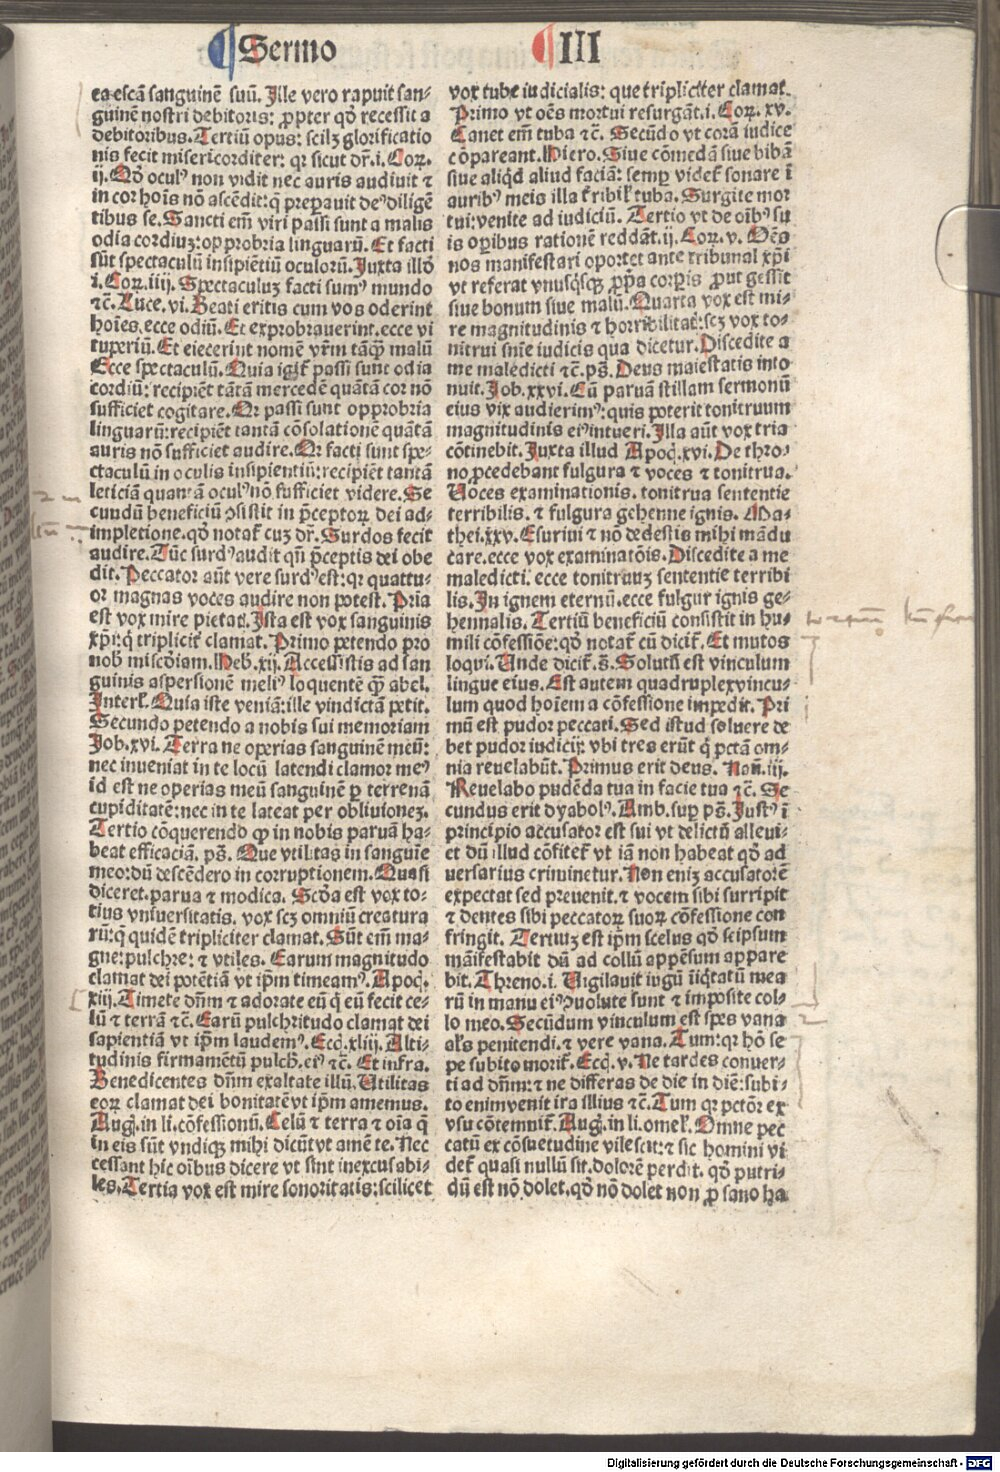 Sermo III
ea escā sanguinē suū. Ille vero rapuit san⸗
guinē nostri debitoris: ꝓpter qđ recessit a
debitoribus. Tertiū opus: scilꝫ glorificatio
nis fecit misericorditer: qꝛ sicut dr̄. i. Coꝝ.
ij. Qđ oculꝰ non vidit nec auris audiuit ⁊
in cor hoīs nō ascēdit: q̄ preparauit deꝰ diligē
tibus se. Sancti em̄ viri passi sunt a malis
odia cordiuꝫ: opprobria linguarū. Et facti
sūt spectaculū insipiētiū oculorū. Juxta illđ
i. Coꝝ. iiij. Spectaculuꝫ facti sumꝰ mundo
⁊c̄. Luce. vi. Beati eritis cum vos oderint
hoīes, ecce odiū. Et exprobrauerint. ecce vi
tuperiū. Et eiecerint nomē vr̄m tāq̄ꝫ malū
Ecce spectaculū. Quia igit̄ passi sunt odia
cordiū: recipiēt tātā mercedē quātā cor nō
sufficiet cogitare. Qꝛ passi sunt opprobria
linguarū: recipiēt tantā cōsolationē quātā
auris nō sufficiet audire. Qꝛ facti sunt spe⸗
ctaculū in oculis insipientiū: recipiēt tantā
leticiā quantā oculꝰ nō sufficiet videre. Se
cundū beneficiū ꝯsistit in p̄ceptoꝝ dei ad⸗
impletione. qđ notat̄ cuꝫ dr̄. Surdos fecit
audire. Tūc surdꝰ audit qn̄ p̄ceptis dei obe
dit. Peccator aūt vere surdꝰ est: qꝛ quattu⸗
or magnas voces audire non potest. Pria
est vox mire pietat̄. Ista est vox sanguinis
xp̄i: q̄ triplicit̄ clamat. Primo petendo pro
nob̄ miscđiam. Heb. xij. Accessistis ad san
guinis aspersionē meliꝰ loquentē q̄ꝫ abel.
Interl̄. Quia iste veniā: ille vindictā petit.
Secundo petendo a nobis sui memoriam
Job. xvi. Terra ne operias sanguinē meū:
nec inueniat in te locū latendi clamor meꝰ
id est ne operias meū sanguinē ꝑ terrenā
cupiditatē: nec in te lateat per obliuioneꝫ.
Tertio cōquerendo ꝙ in nobis paruā ha⸗
beat efficaciā. ps̄. Que vtilitas in sanguīe
meo: dū descēdero in corruptionem. Quasi
diceret. parua ⁊ modica. Scđa est vox to⸗
tius vniuersitatis. vox scꝫ omniū creatura
rū: q̄ quidē tripliciter clamat. Sūt em̄ ma⸗
gne: pulchre: ⁊ vtiles. Earum magnitudo
clamat dei potētiā vt ip̄m timeamꝰ. Apoc̄.
xiij. Timete dn̄m ⁊ adorate eū q̄ eū fecit ce⸗
lū ⁊ terrā ⁊c̄. Earū pulchritudo clamat dei
sapientiā vt ip̄m laudemꝰ. Ecc̄. xliij. Alti⸗
tudinis firmamētū pulch̄. eiꝰ ⁊c̄. Et infra.
Benedicentes dn̄m exaltate illū. Utilitas
eoꝝ clamat dei bonitatē vt ip̄m amemus.
Aug̉. in li. cōfessionū. Celū ⁊ terra ⁊ oīa q̄
in eis sūt vndiqꝫ mihi dicūt vt amē te. Nec
cessant hic oībus dicere vt sint inexcusabi⸗
les. Tertia vox est mire sonoritatis: scilicet
vox tube iudicialis: que tripliciter clamat.
Primo vt oēs mortui resurgāt. i. Coꝝ. xv.
Canet em̄ tuba ⁊c̄. Secūdo vt corā iudice
cōpareant. Hiero. Siue cōmedā siue bibā
siue aliq̄d aliud faciā: semꝑ videt̄ sonare ī
auribꝰ meis illa t̄ribil̄ tuba. Surgite mor
tui: venite ad iudiciū. Tertio vt de oībꝰ su
is oꝑibus rationē reddāt. ij. Coꝝ. v. Oēs
nos manifestari oportet ante tribunal xp̄i
vt referat vnusq̄sqꝫ ꝓp̄a corꝑis ꝓut gessit
siue bonum siue malū. Quarta vox est mi⸗
re magnitudinis ⁊ horribilitat̄: scꝫ vox to⸗
nitrui sn̄ie iudicis qua dicetur. Discedite a
me maledicti ⁊c̄. ps̄. Deus maiestatis into
nuit. Job. xxvi. Cū paruā stillam sermonū
eius vix audierimꝰ: quis poterit tonitruum
magnitudinis eiꝰ intueri. Illa aūt vox tria
cōtinebit. Juxta illud Apoc̄. xvi. De thro⸗
no ꝓcedebant fulgura ⁊ voces ⁊ tonitrua.
Voces examinationis. tonitrua sententie
terribilis. ⁊ fulgura gehenne ignis. Ma⸗
thei. xxv. Esuriui ⁊ nō dedestis mihi mādu
care. ecce vox examinatōis. Discedite a me
maledicti. ecce tonitruuꝫ sententie terribi
lis. In ignem eternū. ecce fulgur ignis ge⸗
hennalis. Tertiū beneficiū consistit in hu⸗
mili cōfessiōe: qđ notat̄ cū dicit̄. Et mutos
loqui. Unde dicit̄. s̄. Solutū est vinculum
lingue eius. Est autem quadruplex vincu⸗
lum quod hoīem a cōfessione impedit. Pri
mū est pudor peccati. Sed istud soluere de
bet pudor iudicij: vbi tres erūt q̄ pctā om⸗
nia reuelabūt. Primus erit deus. Naū. iij.
Reuelabo pudēda tua in facie tua ⁊c̄. Se
cundus erit dyabolꝰ. Amb. suꝑ ps̄. Justꝰ ī
principio accusator est sui vt delictū alleui⸗
et dū illud cōfitet̄ vt iā non habeat qđ ad
versarius criminetur. Non eniꝫ accusatorē
expectat sed preuenit. ⁊ vocem sibi surripit
⁊ dentes sibi peccatoꝝ suoꝝ cōfessione con
fringit. Tertiuꝫ est ip̄m scelus qđ seipsum
māifestabit dū ad collū appēsum appare
bit. Threno. i. Vigilauit iugū iīqtatū mea
rū in manu eiꝰ ꝯuolute sunt ⁊ imposite col⸗
lo meo. Secūdum vinculum est spes vana
al̄s penitendi. ⁊ vere vana. Tum: qꝛ hō se
pe subito morit̄. Ecc̄. v. Ne tardes conuer⸗
ti ad dn̄m: ⁊ ne differas de die in diē: subi⸗
to enim venit ira illius ⁊c̄. Tum qꝛ pctōr ex
vsu cōtemnit̄. Aug̉. in li. omel̄. Omne pec
catū ex cōsuetudine vilescit: ⁊ sic homini vi
det̄ quasi nullū sit. dolorē perdit. qđ putri⸗
dū est nō dolet. qđ nō dolet non ꝓ sano ha
Digitalisierung gefördert durch die Deutsche Forschungsgemeinschaft - DFG